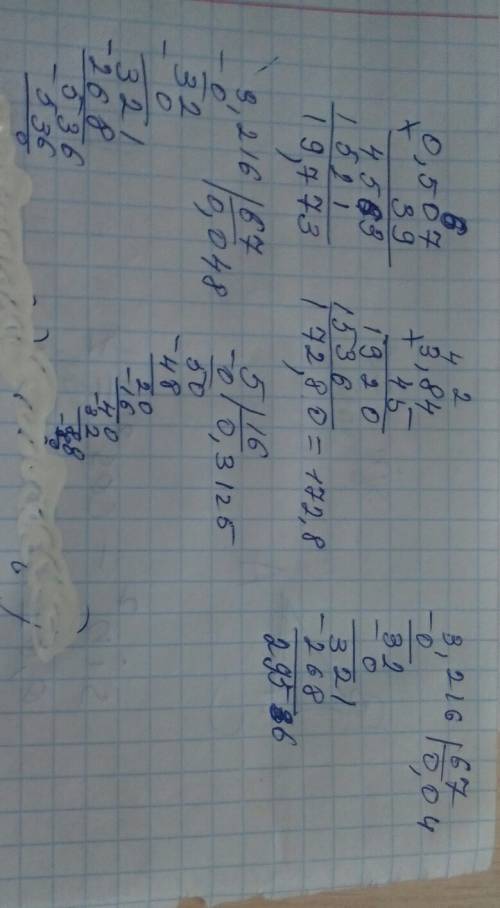 0,507
× 39
4563
1521
19,773
4 2
3,84
× 45
1920
1536
172,80 = 172,8
3,216 | 67
- 0 | 0,04
32
- 0
321
- 268
3,216 | 67
- 0 | 0,048
32
- 0
321
- 268
536
- 536
0
5 | 16
- 0 | 0,3125
50
- 48
20
- 16
40
- 32